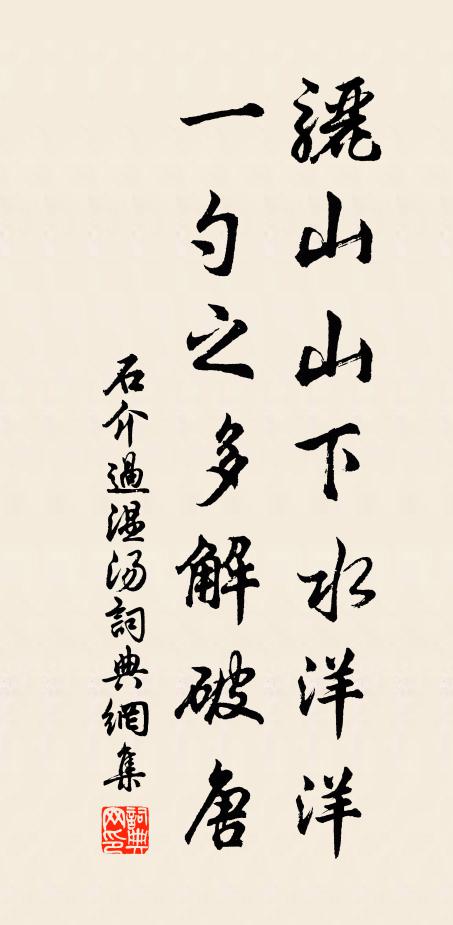 驪山山下水洋洋
一勺之多解破唐
石介過温湯詞典網集
詞典
网印